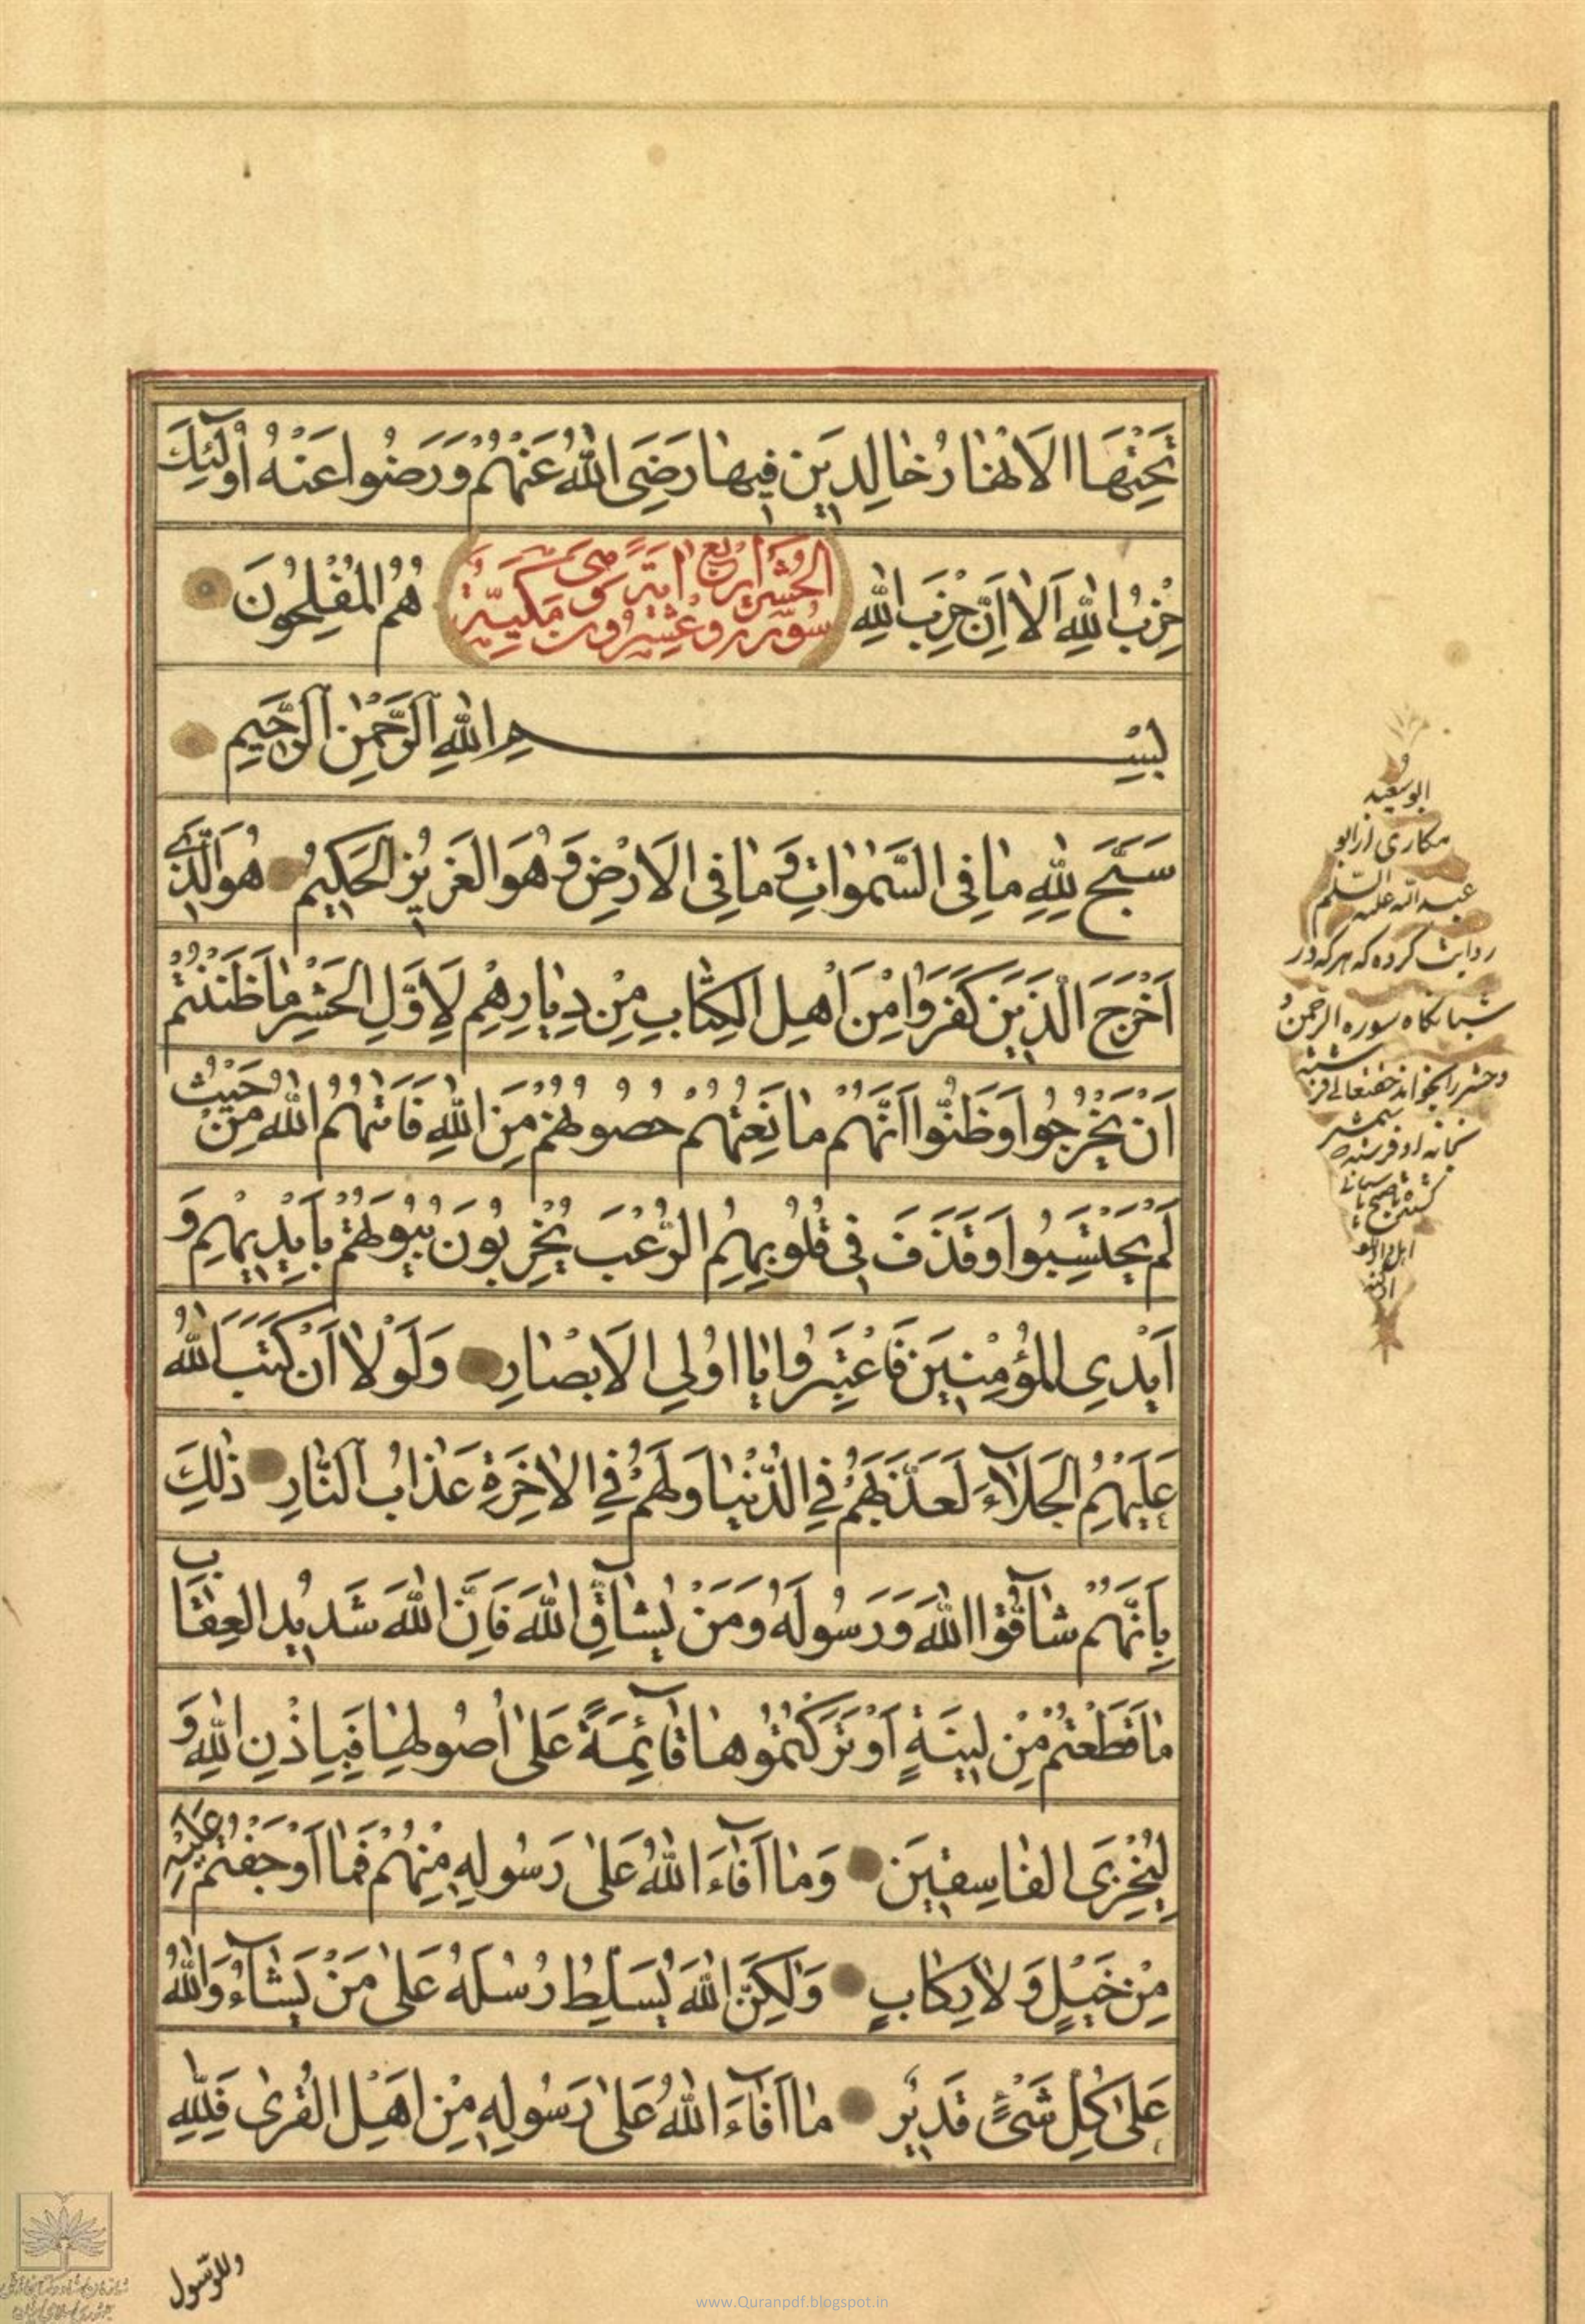 تَحْتِهَا الْاَنْهٰارُ خٰالِدِينَ فِيهٰا رَضِيَ اللّٰهُ عَنْهُمْ وَرَضُوا عَنْهُ اُولٰٓئِكَ
حِزْبُ اللّٰهِ اَلٰا اِنَّ حِزْبَ اللّٰهِ هُمُ الْمُفْلِحُونَ
سورة الحشر اربع وعشرون آية مكية
بِسْمِ اللّٰهِ الرَّحْمٰنِ الرَّحِيمِ
سَبَّحَ لِلّٰهِ مٰا فِى السَّمٰوٰاتِ وَمٰا فِى الْاَرْضِ وَهُوَ الْعَزِيزُ الْحَكِيمُ هُوَ الَّذِي
اَخْرَجَ الَّذِينَ كَفَرُوا مِنْ اَهْلِ الْكِتٰابِ مِنْ دِيٰارِهِمْ لِاَوَّلِ الْحَشْرِ مٰا ظَنَنْتُمْ
اَنْ يَخْرُجُوا وَظَنُّوا اَنَّهُمْ مٰانِعَتُهُمْ حُصُونُهُمْ مِنَ اللّٰهِ فَاَتٰهُمُ اللّٰهُ مِنْ حَيْثُ
لَمْ يَحْتَسِبُوا وَقَذَفَ فِى قُلُوبِهِمُ الرُّعْبَ يُخْرِبُونَ بُيُوتَهُمْ بِاَيْدِيهِمْ وَ
اَيْدِى الْمُؤْمِنِينَ فَاعْتَبِرُوا يٰا اُولِى الْاَبْصٰارِ وَلَوْلٰا اَنْ كَتَبَ اللّٰهُ
عَلَيْهِمُ الْجَلٰٓاءَ لَعَذَّبَهُمْ فِى الدُّنْيٰا وَلَهُمْ فِى الْاٰخِرَةِ عَذٰابُ النّٰارِ ذٰلِكَ
بِاَنَّهُمْ شٰٓاقُّوا اللّٰهَ وَرَسُولَهُ وَمَنْ يُشٰٓاقِّ اللّٰهَ فَاِنَّ اللّٰهَ شَدِيدُ الْعِقٰابِ
مٰا قَطَعْتُمْ مِنْ لِينَةٍ اَوْ تَرَكْتُمُوهٰا قٰٓائِمَةً عَلٰى اُصُولِهٰا فَبِاِذْنِ اللّٰهِ وَ
لِيُخْزِىَ الْفٰاسِقِينَ وَمٰا اَفٰٓاءَ اللّٰهُ عَلٰى رَسُولِهِ مِنْهُمْ فَمٰا اَوْجَفْتُمْ عَلَيْهِ
مِنْ خَيْلٍ وَلٰا رِكٰابٍ وَلٰكِنَّ اللّٰهَ يُسَلِّطُ رُسُلَهُ عَلٰى مَنْ يَشٰٓاءُ وَاللّٰهُ
عَلٰى كُلِّ شَىْءٍ قَدِيرٌ مٰا اَفٰٓاءَ اللّٰهُ عَلٰى رَسُولِهِ مِنْ اَهْلِ الْقُرٰى فَلِلّٰهِ
وللرّسول
ابو سعید
مکاری از ابو
عبد الله علیه السّلم
روایت کرده که هر که در
شبانگاه سوره الرحمن
و حشر را بخواند حقتعالی فرشته
www.Quranpdf.blogspot.in